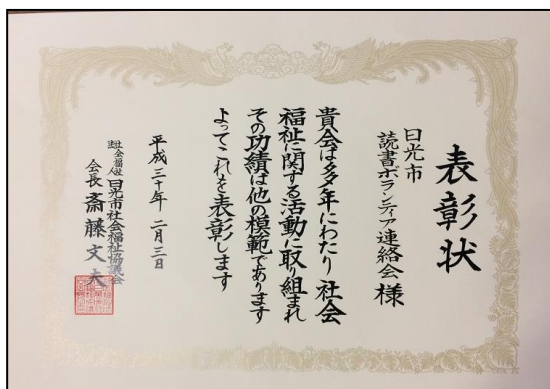 表彰状
日光市
読書ボランティア連絡会 様
貴会は多年にわたり 社会
福祉に関する活動に取り組まれ
その功績は他の模範であります
よってこれを表彰します
平成三十年 二月三日
社会福祉法人 日光市社会福祉協議会
会長 斎藤文夫